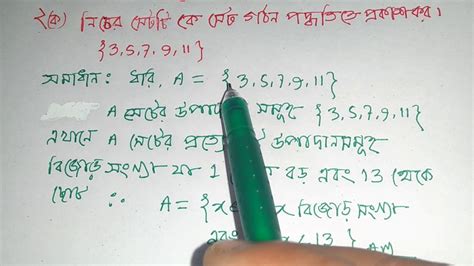 ২(ক) নিচের সেটটি কে সেট গঠন পদ্ধতিতে প্রকাশ কর।
{3,5,7,9,11}
সমাধান: ধরি, A = {3,5,7,9,11}
A সেটের উপাদান সমূহ {3,5,7,9,11}
এখানে A সেটের উপাদানসমূহ
বিজোড় সংখ্যা যা 1 বড় এবং 13 থেকে
ছোট ∴
A = {x x বিজোড় সংখ্যা
এবং 13} Ans